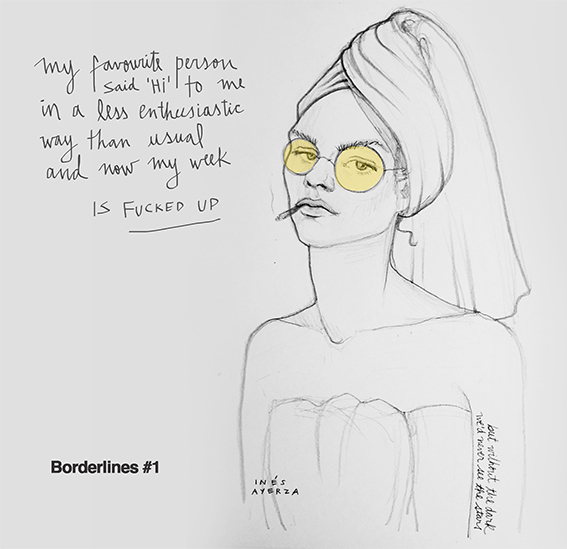 my favourite person
said 'Hi' to me
in a less enthusiastic
way than usual
and now my week
IS FUCKED UP
Borderlines #1
INÉS
AYERZA
but without the dark
we'd never see the stars